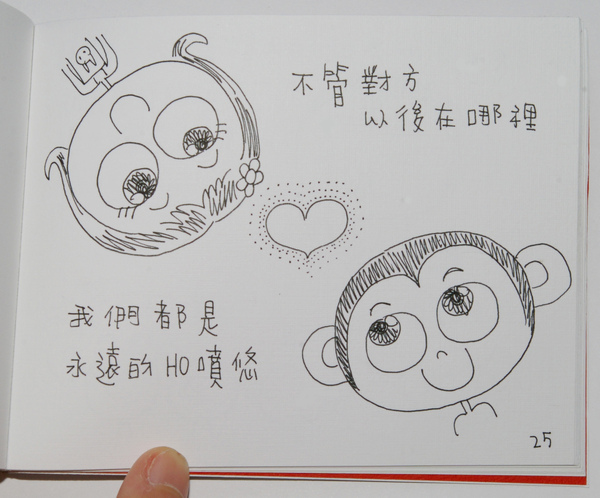 不管對方
以後在哪裡
我們都是
永遠的HO噴悠
25